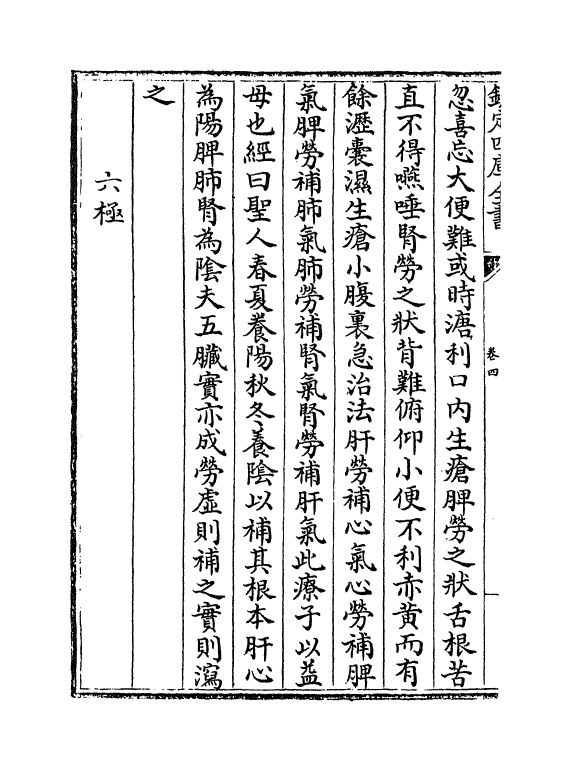 欽定四庫全書
卷四
忽喜忘大便難或時溏利口内生瘡脾勞之狀舌根苦
直不得嚥唾腎勞之狀背難俯仰小便不利赤黄而有
餘瀝囊濕生瘡小腹裏急治法肝勞補心氣心勞補脾
氣脾勞補肺氣肺勞補腎氣腎勞補肝氣此療子以益
母也經曰聖人春夏養陽秋冬養陰以補其根本肝心
為陽脾肺腎為陰夫五臟實亦成勞虛則補之實則瀉
之
六極